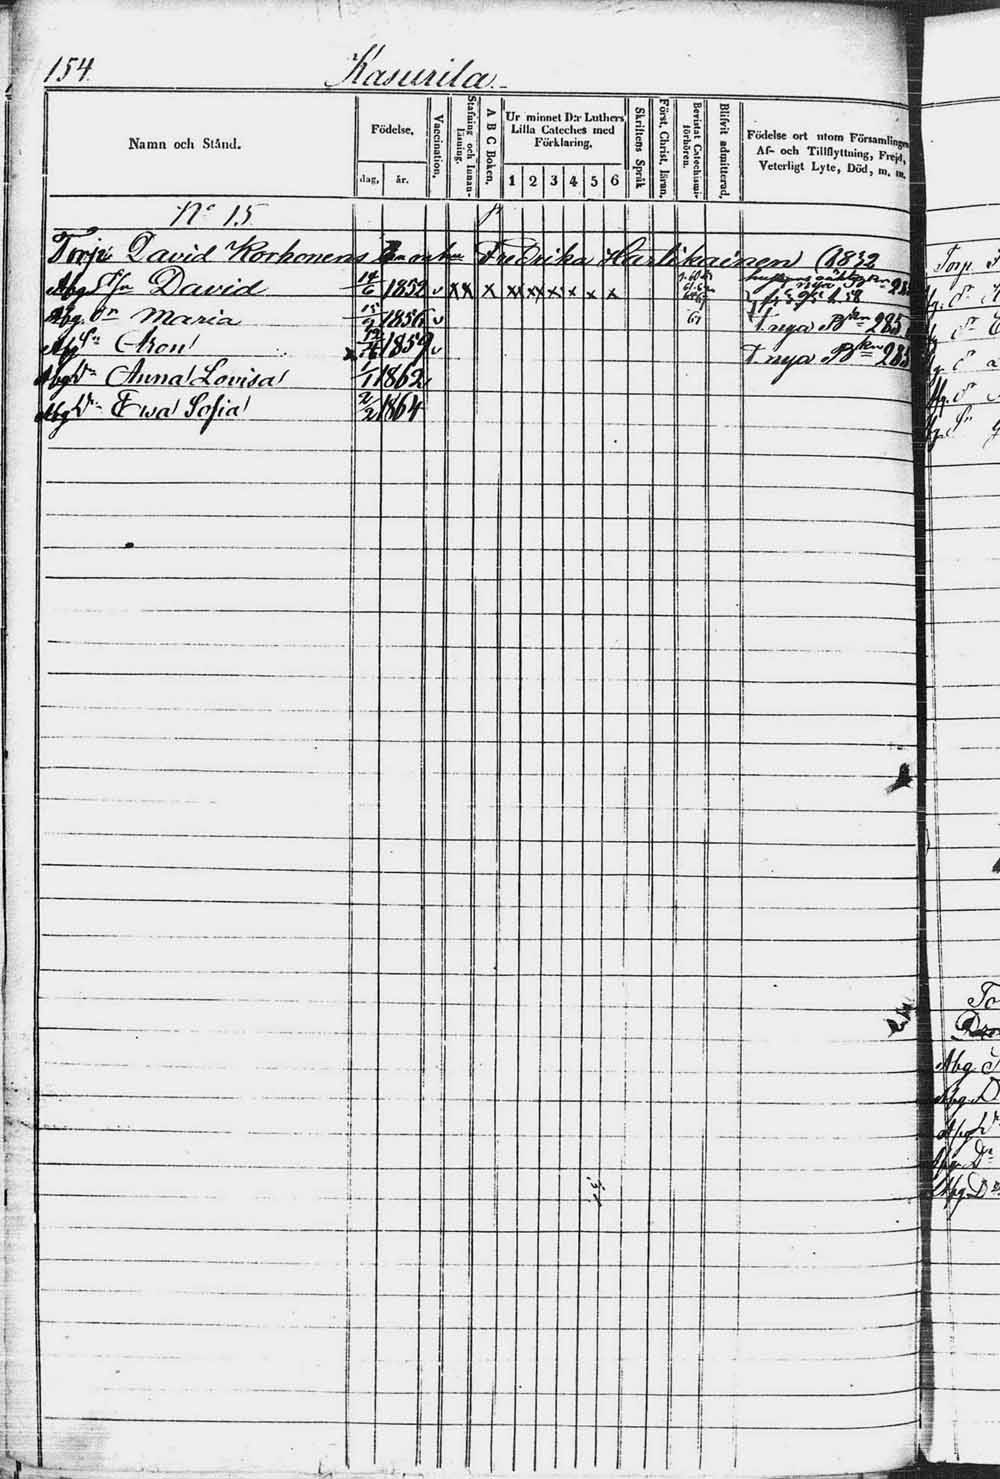 154.
Kasurila.
Namn och Stånd.
Födelse,
dag,
år.
Vaccination.
Stafning och Innan-
läsning.
A B C Boken.
Ur minnet D:r Luthers
Lilla Cateches med
Förklaring.
1 2 3 4 5 6
Skriftens Språk
Först. Christ. läran.
Bevistat Catechismi-
förhören.
Blifvit admitterad.
Födelse ort utom Församlingen
Af- och Tillflyttning, Frejd,
Veterligt Lyte, Död, m. m.
N:o 15
Torp: David Korhonens Fredrika Hartikainen (1832
Abg. David 14/6 1852 v x x x x x x x x x
Abg. Maria 1856 v 67 T nya Bkn 285
Abg. 1859 v T nya Bkn 285
Abg Dr Anna Lovisa 1/1 1862
Abg Dr Ewa Sofia 2/2 1864
Torp.
Abg
Abg. D